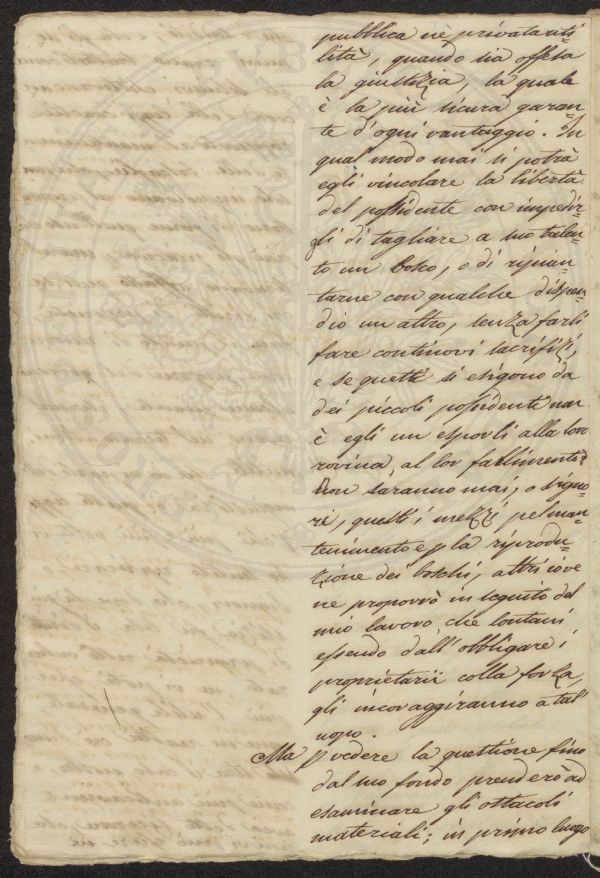 pubblica nè privata uti-
lità, quando sia offesa
la giustizia, la quale
è la più sicura garan-
te d'ogni vantaggio. In
qual modo mai si potrà
egli vincolare la libertà
del possidente con impedir-
gli di tagliare a suo talen-
to un bosco, o di ripian-
tarne con qualche dispen-
dio un altro, senza farli
fare continovi sacrifizi,
e se questi si esigono da
dei piccoli possidenti non
è egli un esporli alla loro
rovina, al lor fallimento?
Non saranno mai, o signo-
ri, questi i mezzi pel man-
tenimento e p la riprodu-
zione dei boschi; altri io ve
ne proporrò in seguito del
mio lavoro che lontani
essendo dall'obbligare i
proprietarii colla forza,
gli incoraggiranno a tal'
uopo.
Ma p vedere la questione fino
dal suo fondo prenderò ad
esaminare gli ostacoli
materiali; in primo luogo